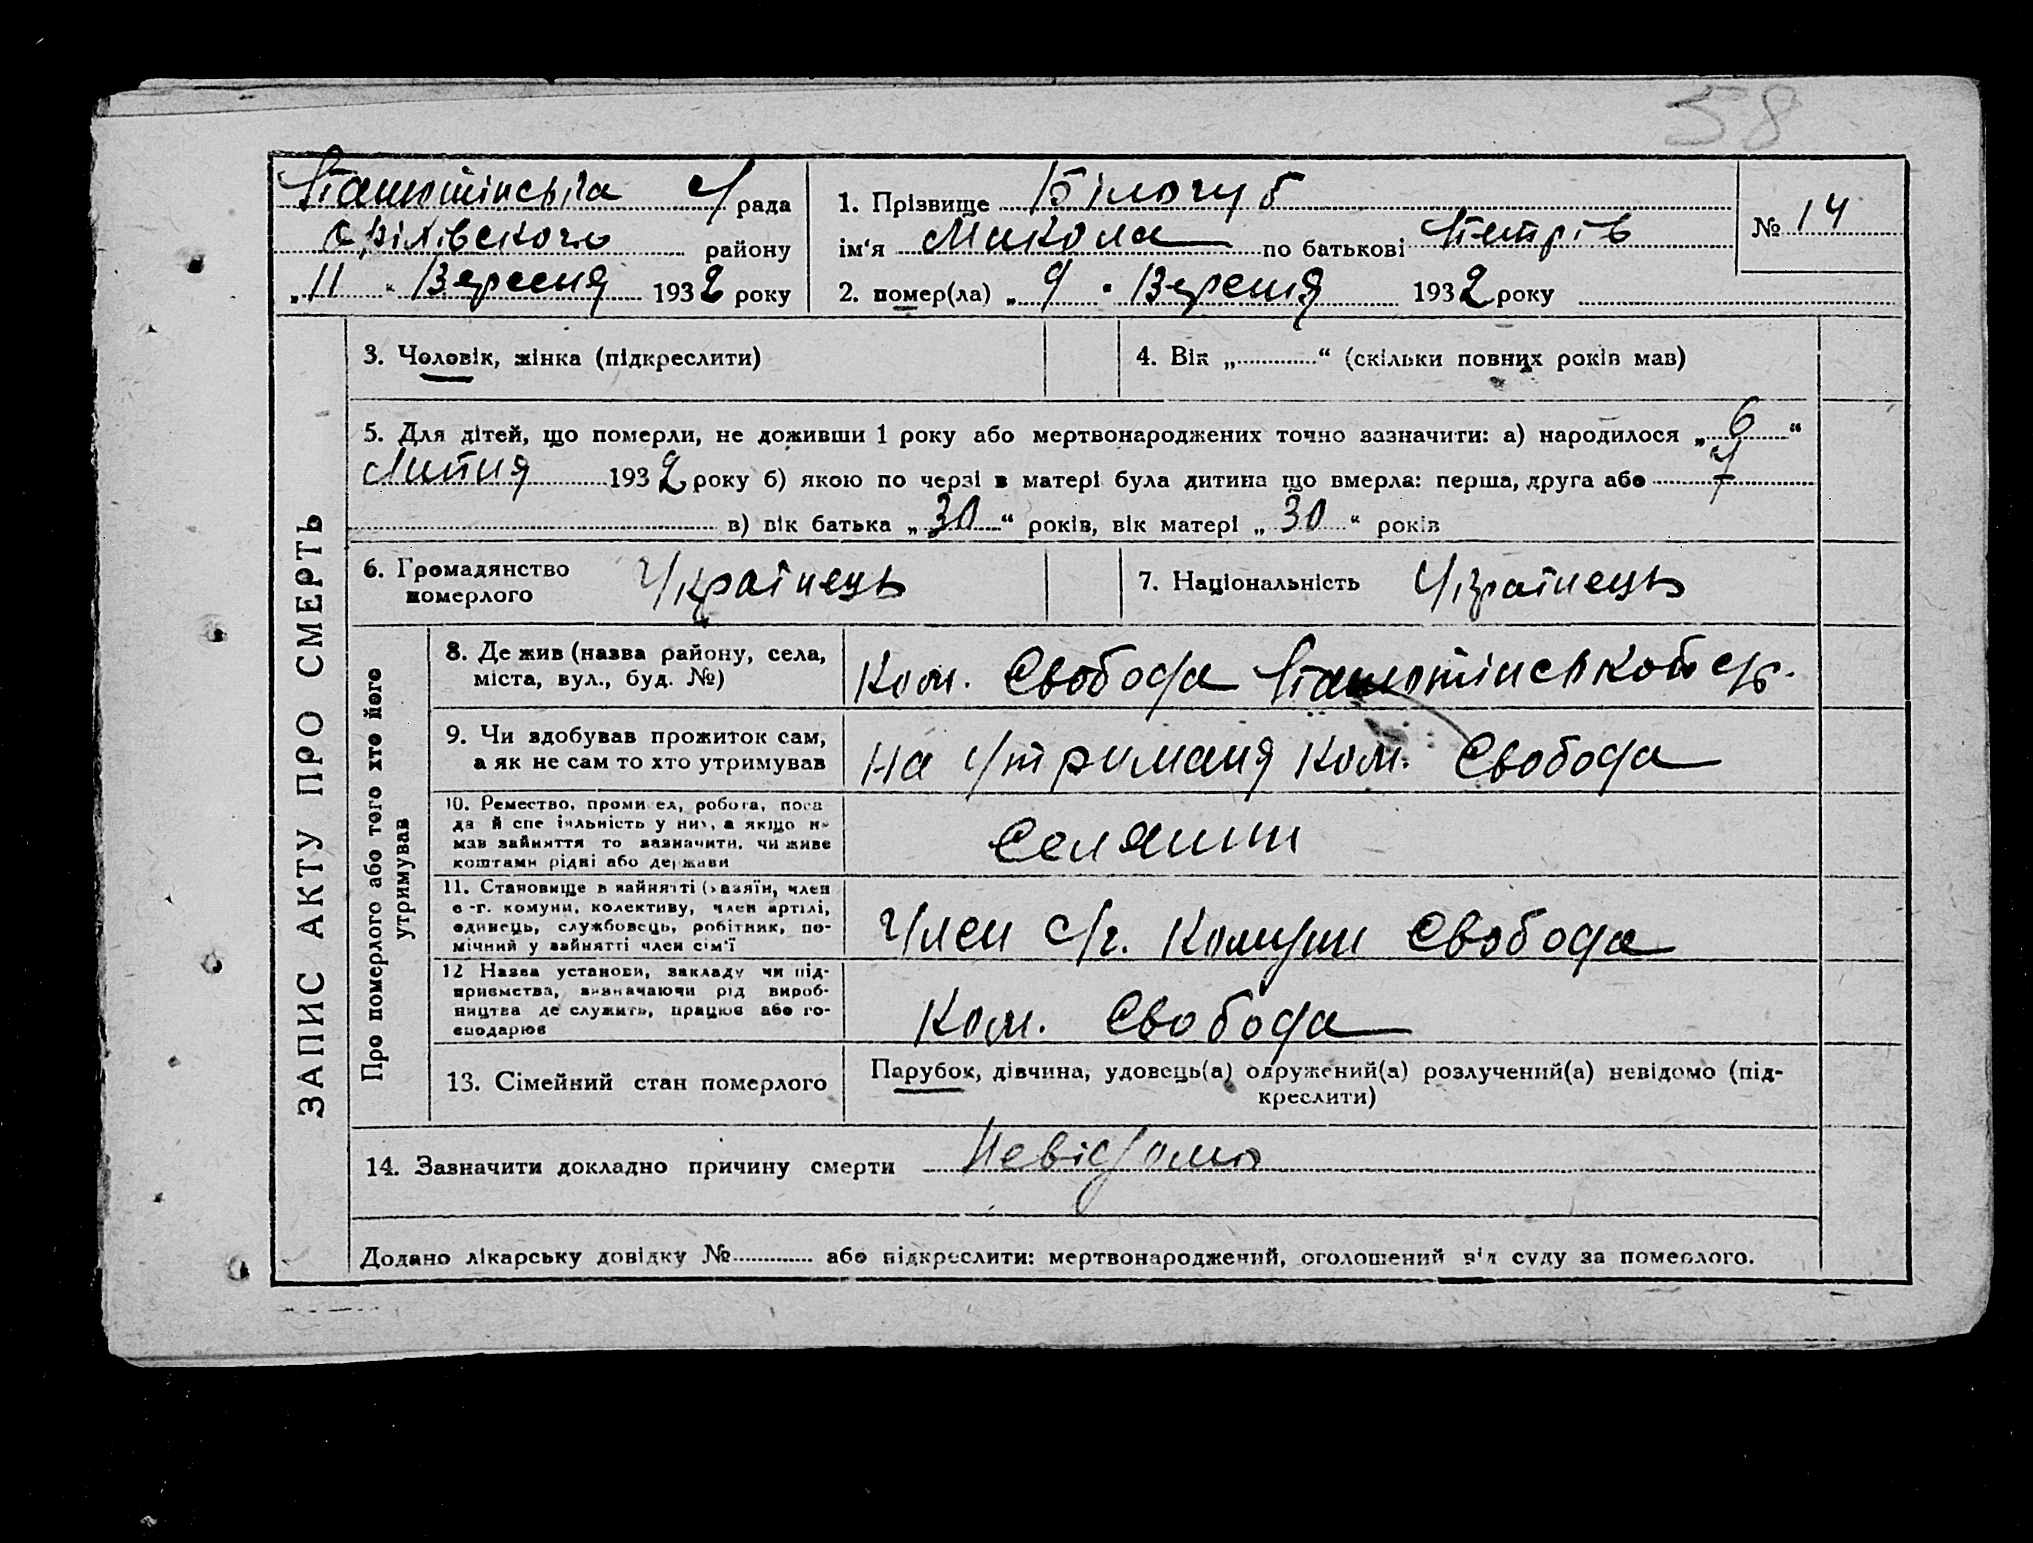 58
Панютінська С/рада
Орілівского району
„11“ Вересня 1932 року
1. Прізвище Білогуб
ім'я Микола по батькові Петрів
№ 14
2. помер(ла) „9“ Вересня 1932 року
ЗАПИС АКТУ ПРО СМЕРТЬ
3. Чоловік, жінка (підкреслити)
4. Вік „............“ (скільки повних років мав)
5. Для дітей, що померли, не доживши 1 року або мертвонароджених точно зазначити: а) народилося „6“
Липня 1932 року б) якою по черзі в матері була дитина що вмерла: перша, друга або 4
в) вік батька „30“ років, вік матері „30“ років
6. Громадянство
померлого
Українець
7. Національність Українець
Про померлого або того хто його
утримував
8. Де жив (назва району, села,
міста, вул., буд. №)
Ком. Свобода Панютінської с/р.
9. Чи здобував прожиток сам,
а як не сам то хто утримував
На утриманя Ком. Свобода
10. Ремество, промисел, робота, поса
да й спеціяльність у них, а якщо не
мав зайняття то зазначити, чи живе
коштами рідні або держави
Селянин
11. Становище в зайнятті (хазяїн, член
с.-г. комуни, колективу, член артілі,
одинець, службовець, робітник, по-
мічний у зайнятті член сім'ї
Член с/г. Комуни Свобода
12 Назва установи, закладу чи під-
приємства, визначаючи рід вироб-
ництва де служить, працює або го-
сподарює
Ком. Свобода
13. Сімейний стан померлого
Парубок, дівчина, удовець(а) одружений(а) розлучений(а) невідомо (під-
креслити)
14. Зазначити докладно причину смерти Невідомо
Додано лікарську довідку №............ або підкреслити: мертвонароджений, оголошений від суду за померлого.